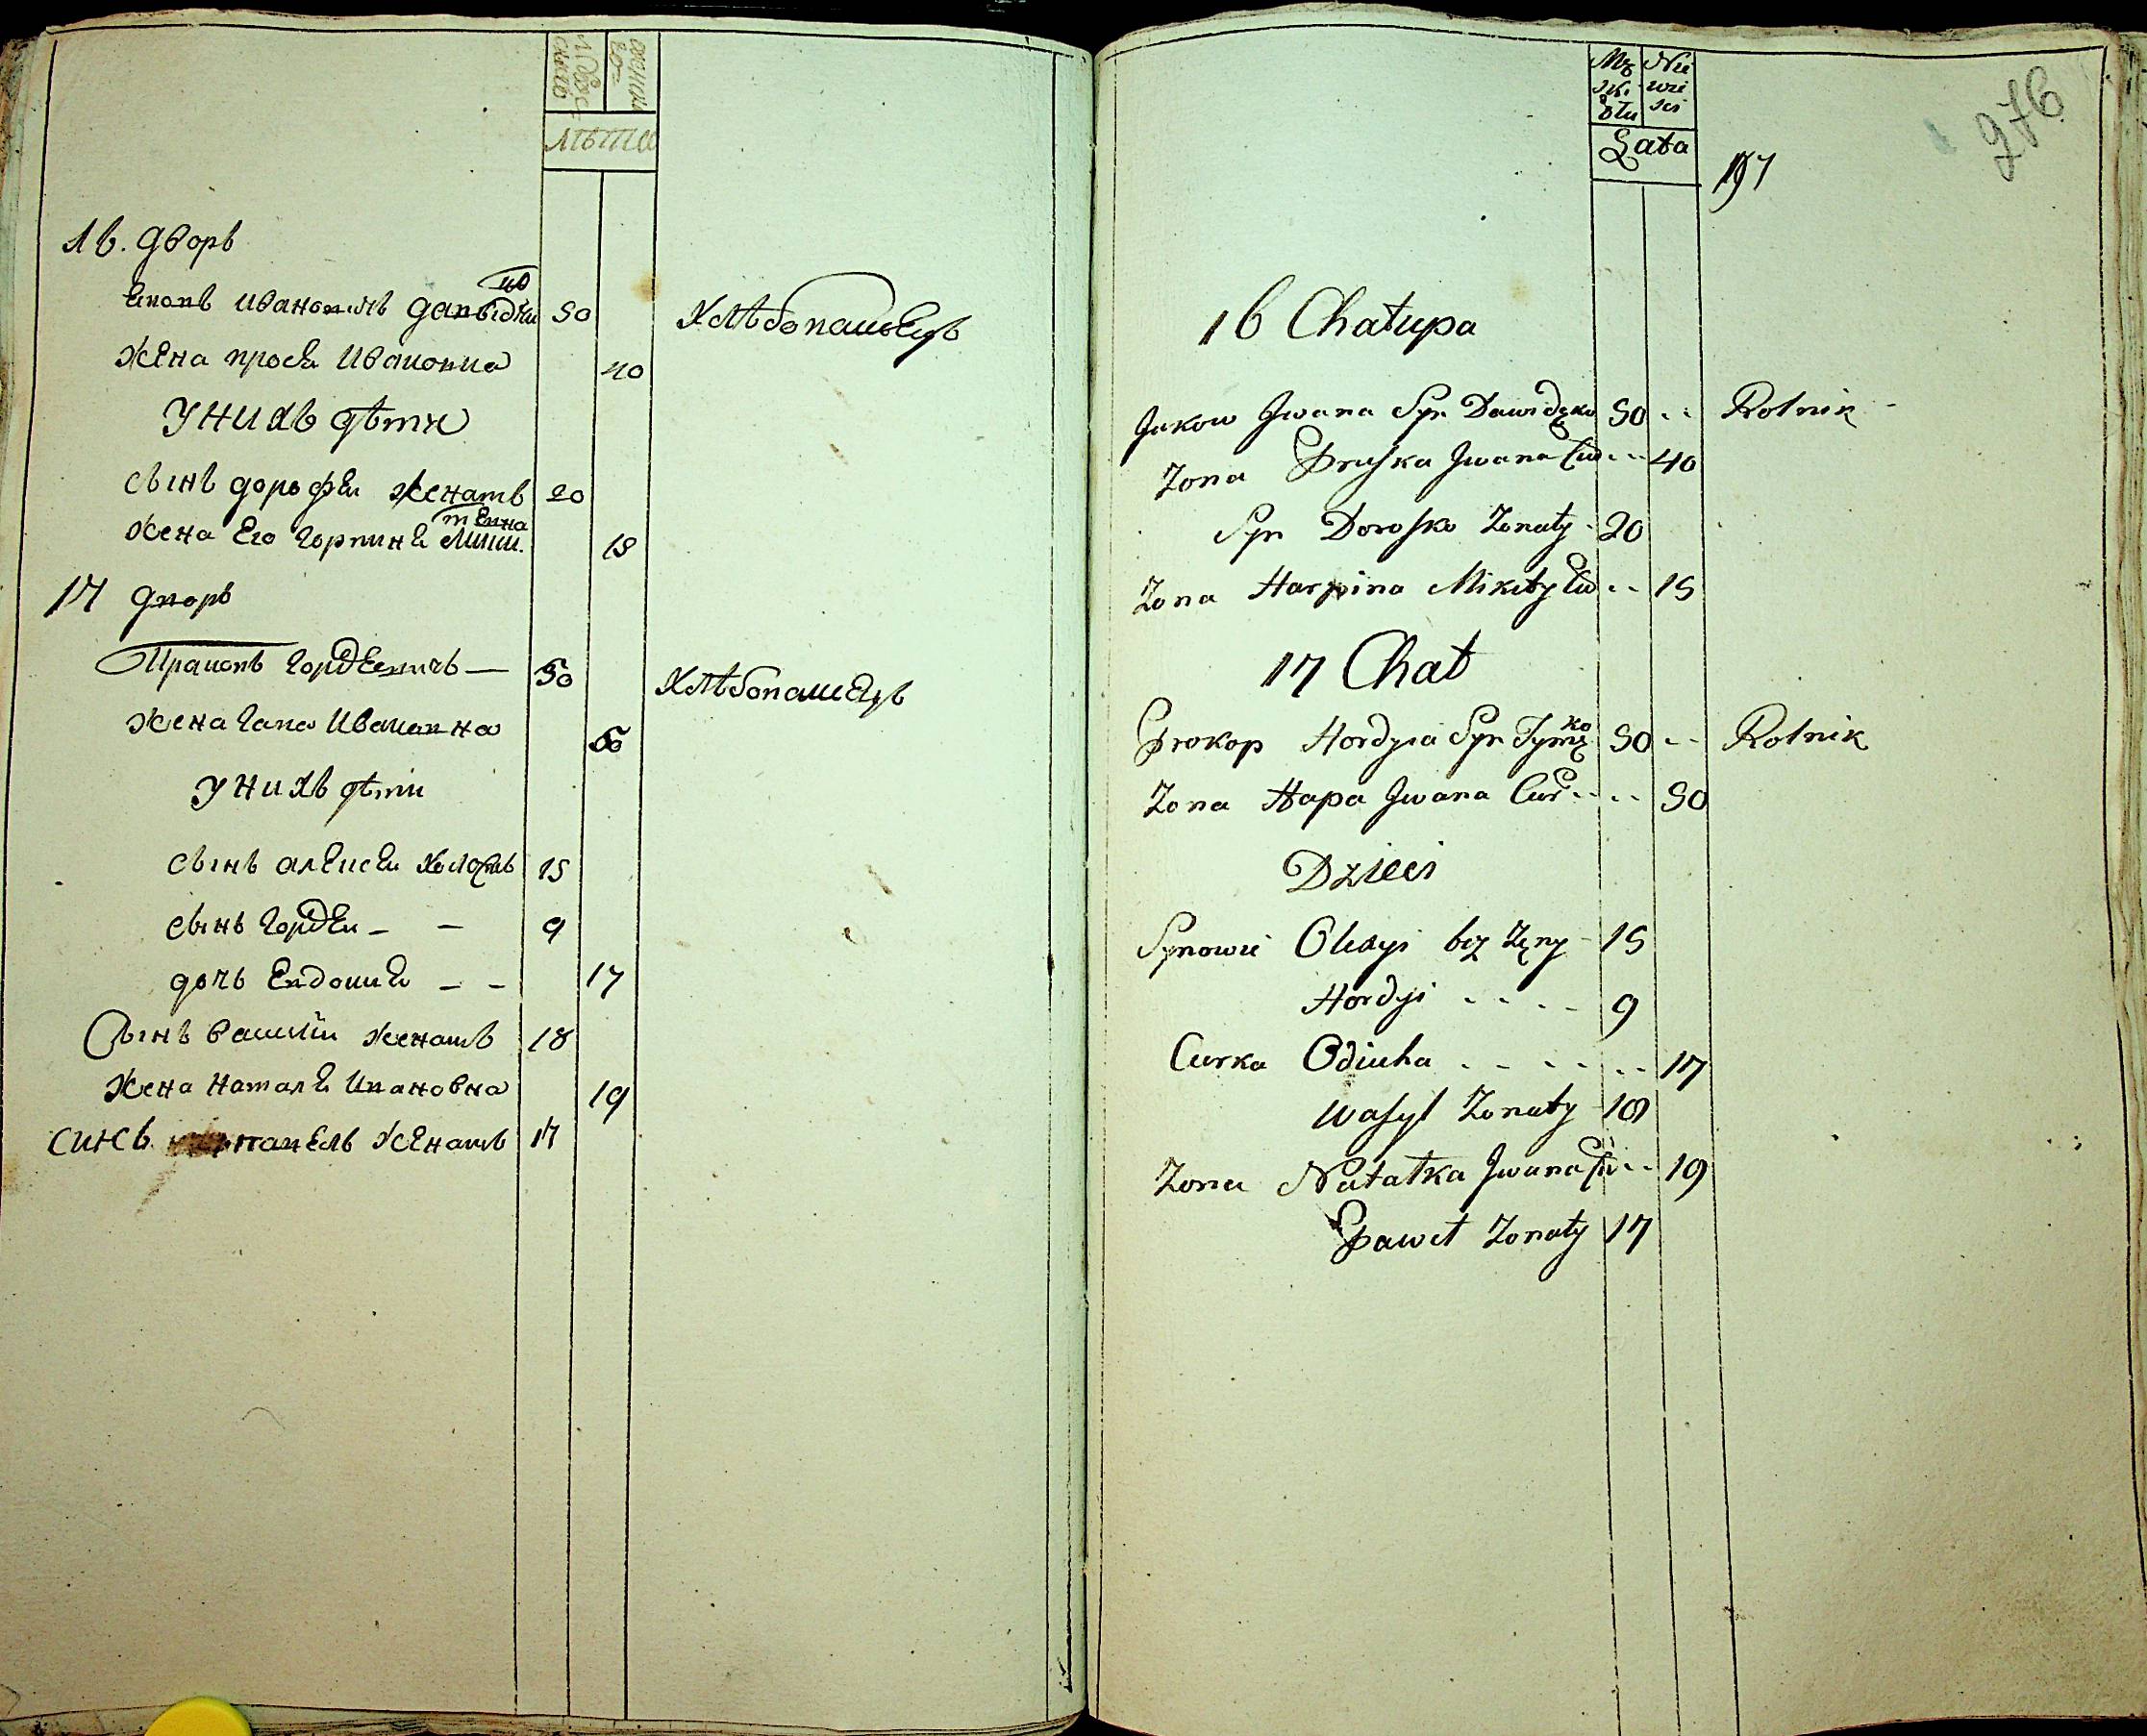 мужеска
женска
лѣта
16. дворъ
Яковъ Ивановичъ давидченко 50 хлѣбопашецъ
жена прося Ивановна 40
у нихъ дѣти
сынъ дорофѣи женатъ 20
жена Его горпиня Микитевна 15
17 дворъ
гордѣевичъ — 50 хлѣбопашецъ
жена гапа Ивановна 50
у нихъ дѣти
сынъ алексѣи холостъ 15
сынъ гордѣи - - 9
дочь Евдокия - - 17
Сынъ василiи женатъ 18
жена наталя Ивановна 19
синъ павелъ женатъ 17
276
Mę Nie
ski wie
Płu sci
Lata
197
16 Chałupa
Jakow Jwana Syn Dawidęko 50 -- Rolnik -
Zona Pruska Jwana Cur -- 40
Syn Dorosko Zonaty - 20
Zona Harpina Mikity Cur -- 15
17 Chat
Prokop Hordyia Syn Tymęko 50 -- Rolnik
Zona Hapa Jwana Cur -- -- 50
Dzieci
Synowie Olexyi bez Żęny - 15
Hordyi - - - - 9
Curka Odiuha - - - - -- 17
Wasyl Zonaty - 18
Zona Natałka Jwana Cur -- 19
Paweł Zonaty 17